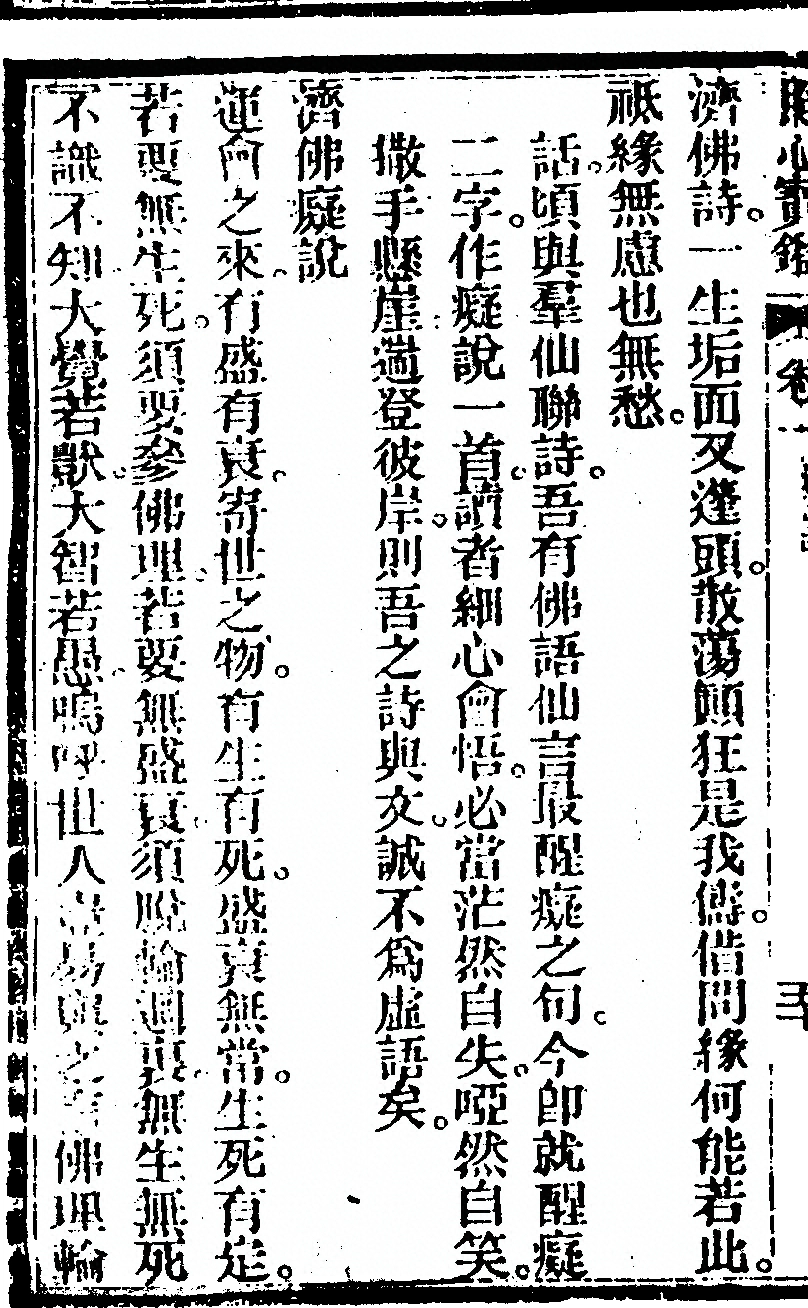 濟佛詩。一生垢面又蓬頭。散蕩顚狂是我儔。借問緣何能若此。
祇緣無慮也無愁。
話。頃與羣仙聯詩。吾有佛語仙言最醒癡之句。今卽就醒癡
二字。作癡說一首。讀者細心會悟。必當茫然自失。啞然自笑。
撒手懸崖。遄登彼岸。則吾之詩與文。誠不爲虛語矣。
濟佛癡說
運會之來。有盛有衰。寄世之物。有生有死。盛衰無常。生死有定。
若要無生死。須要參佛理。若要無盛衰。須脫輪迴裏。無生無死
不識不知大覺若獃。大智若愚。嗚呼世人 易與之言佛理輪
心寶鑑 卷一 三